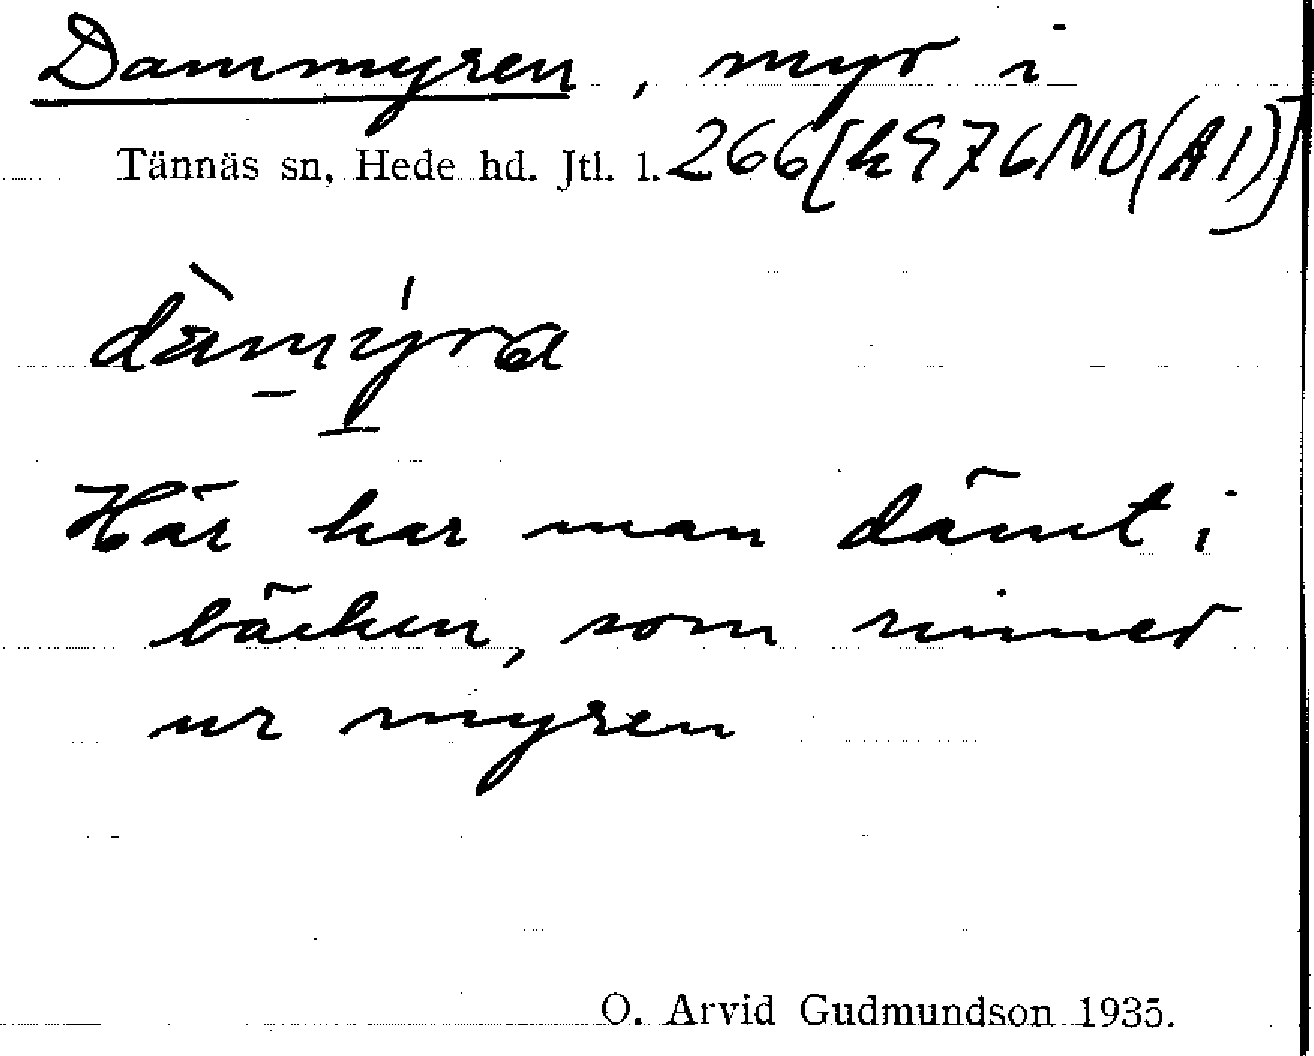 Dammyren, myr i
Tännäs sn, Hede hd. Jtl. l. 266[k976NO(A1)]
dàmýra
Här har man dämt i
bäcken, som rinner
ur myren
O. Arvid Gudmundson 1935.